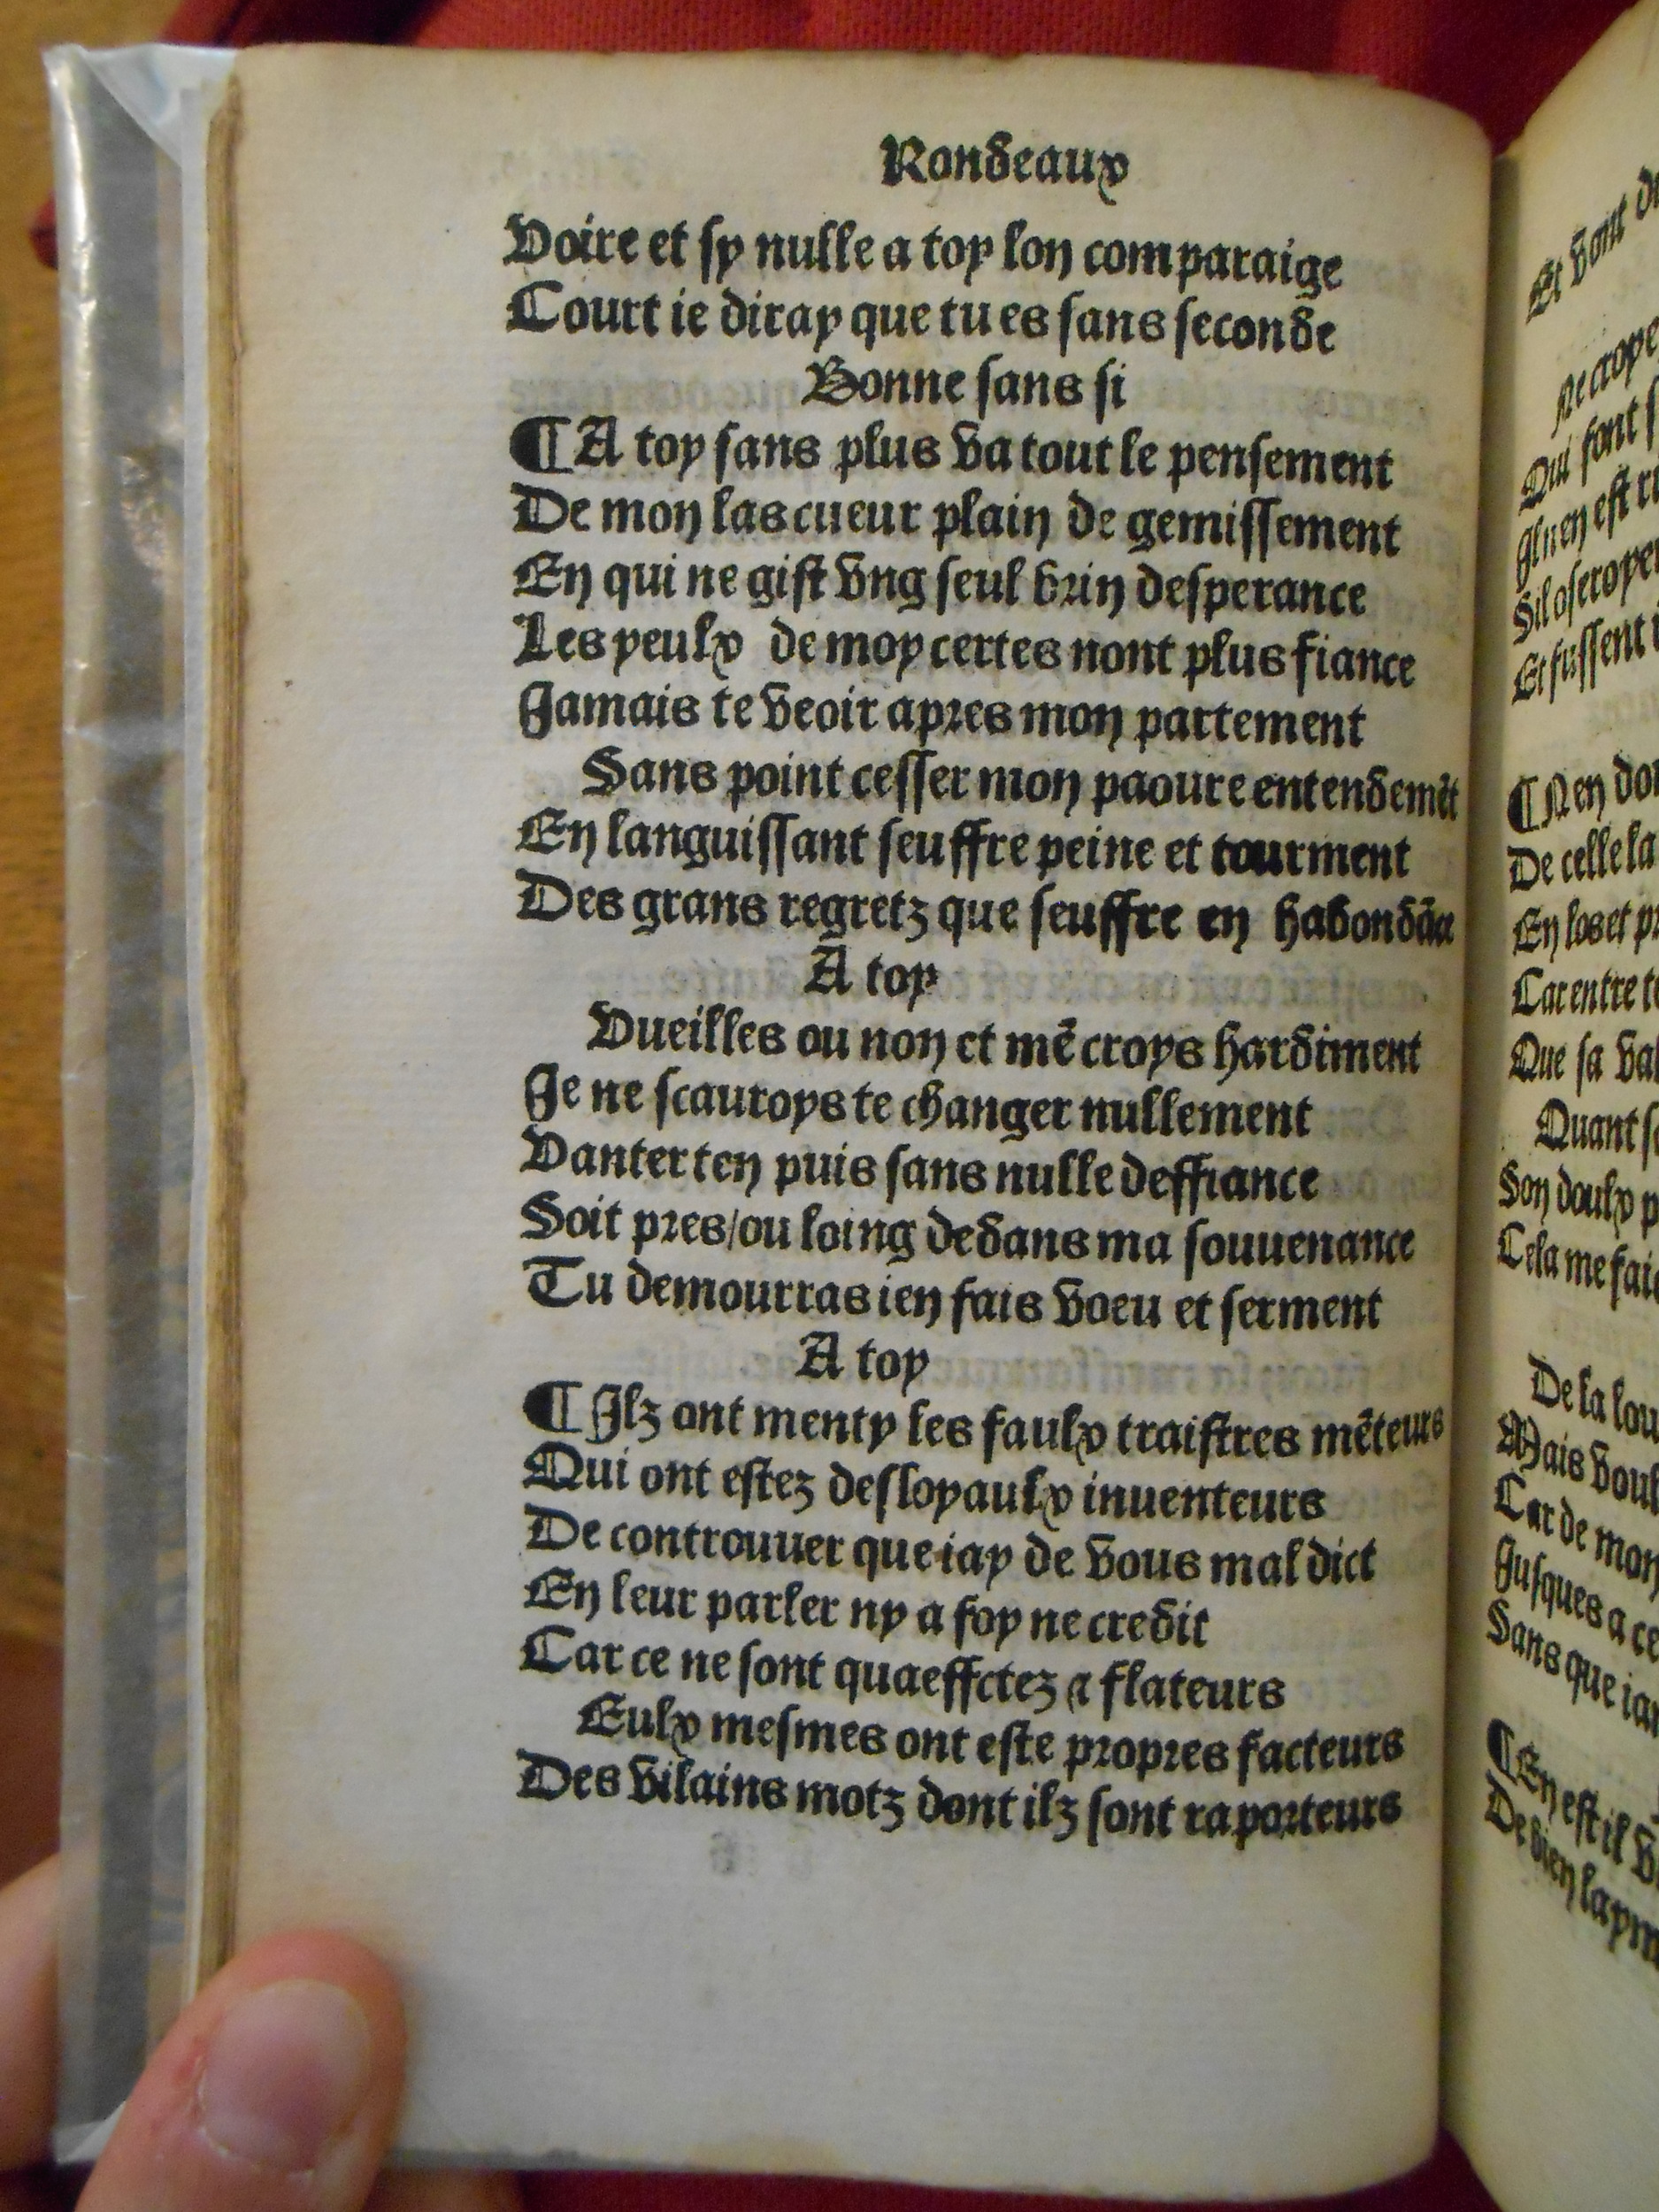 Rondeaux
Voire et sy nulle a toy lon comparaige
Court ie diray que tu es sans seconde
Bonne sans si
¶ A toy sans plus va tout le pensement
De mon las cueur plain de gemissement
En qui ne gist vng seul brin desperance
Les yeulx de moy certes nont plus fiance
Jamais te veoir apres mon partement
Sans point cesser mon paoure entendemēt
En languissant seuffre peine et tourment
Des grans regretz que seuffre en habondāce
A toy
Vueilles ou non et mē croys hardiment
Je ne scauroys te changer nullement
Vanter ten puis sans nulle deffiance
Soit pres/ou loing dedans ma souuenance
Tu demourras ien fais voeu et serment
A toy
¶ Jlz ont menty les faulx traistres mēteurs
Qui ont estez desloyaulx inuenteurs
De controuuer que iay de vous mal dict
En leur parler ny a foy ne credit
Car ce ne sont quaeffctez ⁊ flateurs
Eulx mesmes ont este propres facteurs
Des vilains motz dont ilz sont raporteurs
Et vont
Qui font
Et fussent
¶ Nen
De celle la
En los et
Car entre
Que sa
Quant
Son doulx
Cela me
De la
Mais
Car de mon
Jusques a ce
Sans que
¶ En est il
De bien